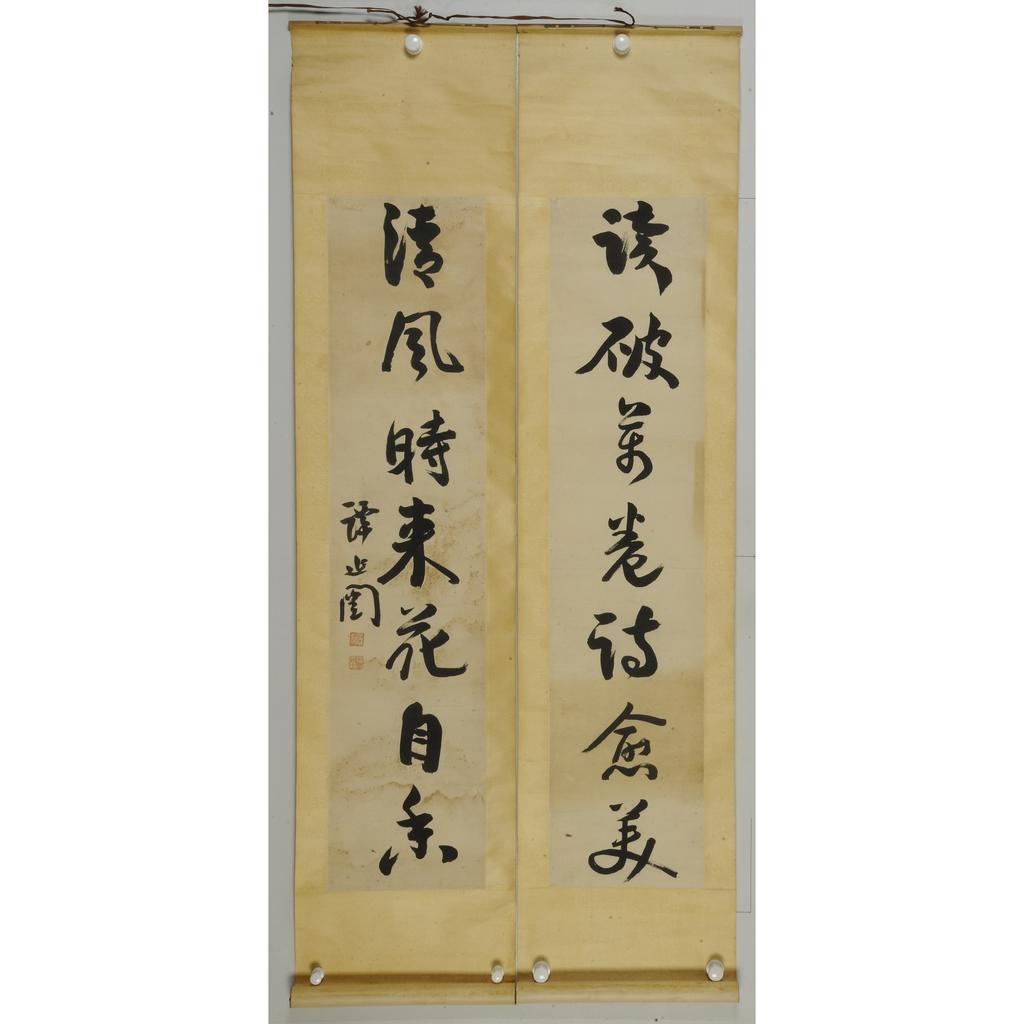 讀破萬卷詩愈美
清風時来花自香
譚延闓